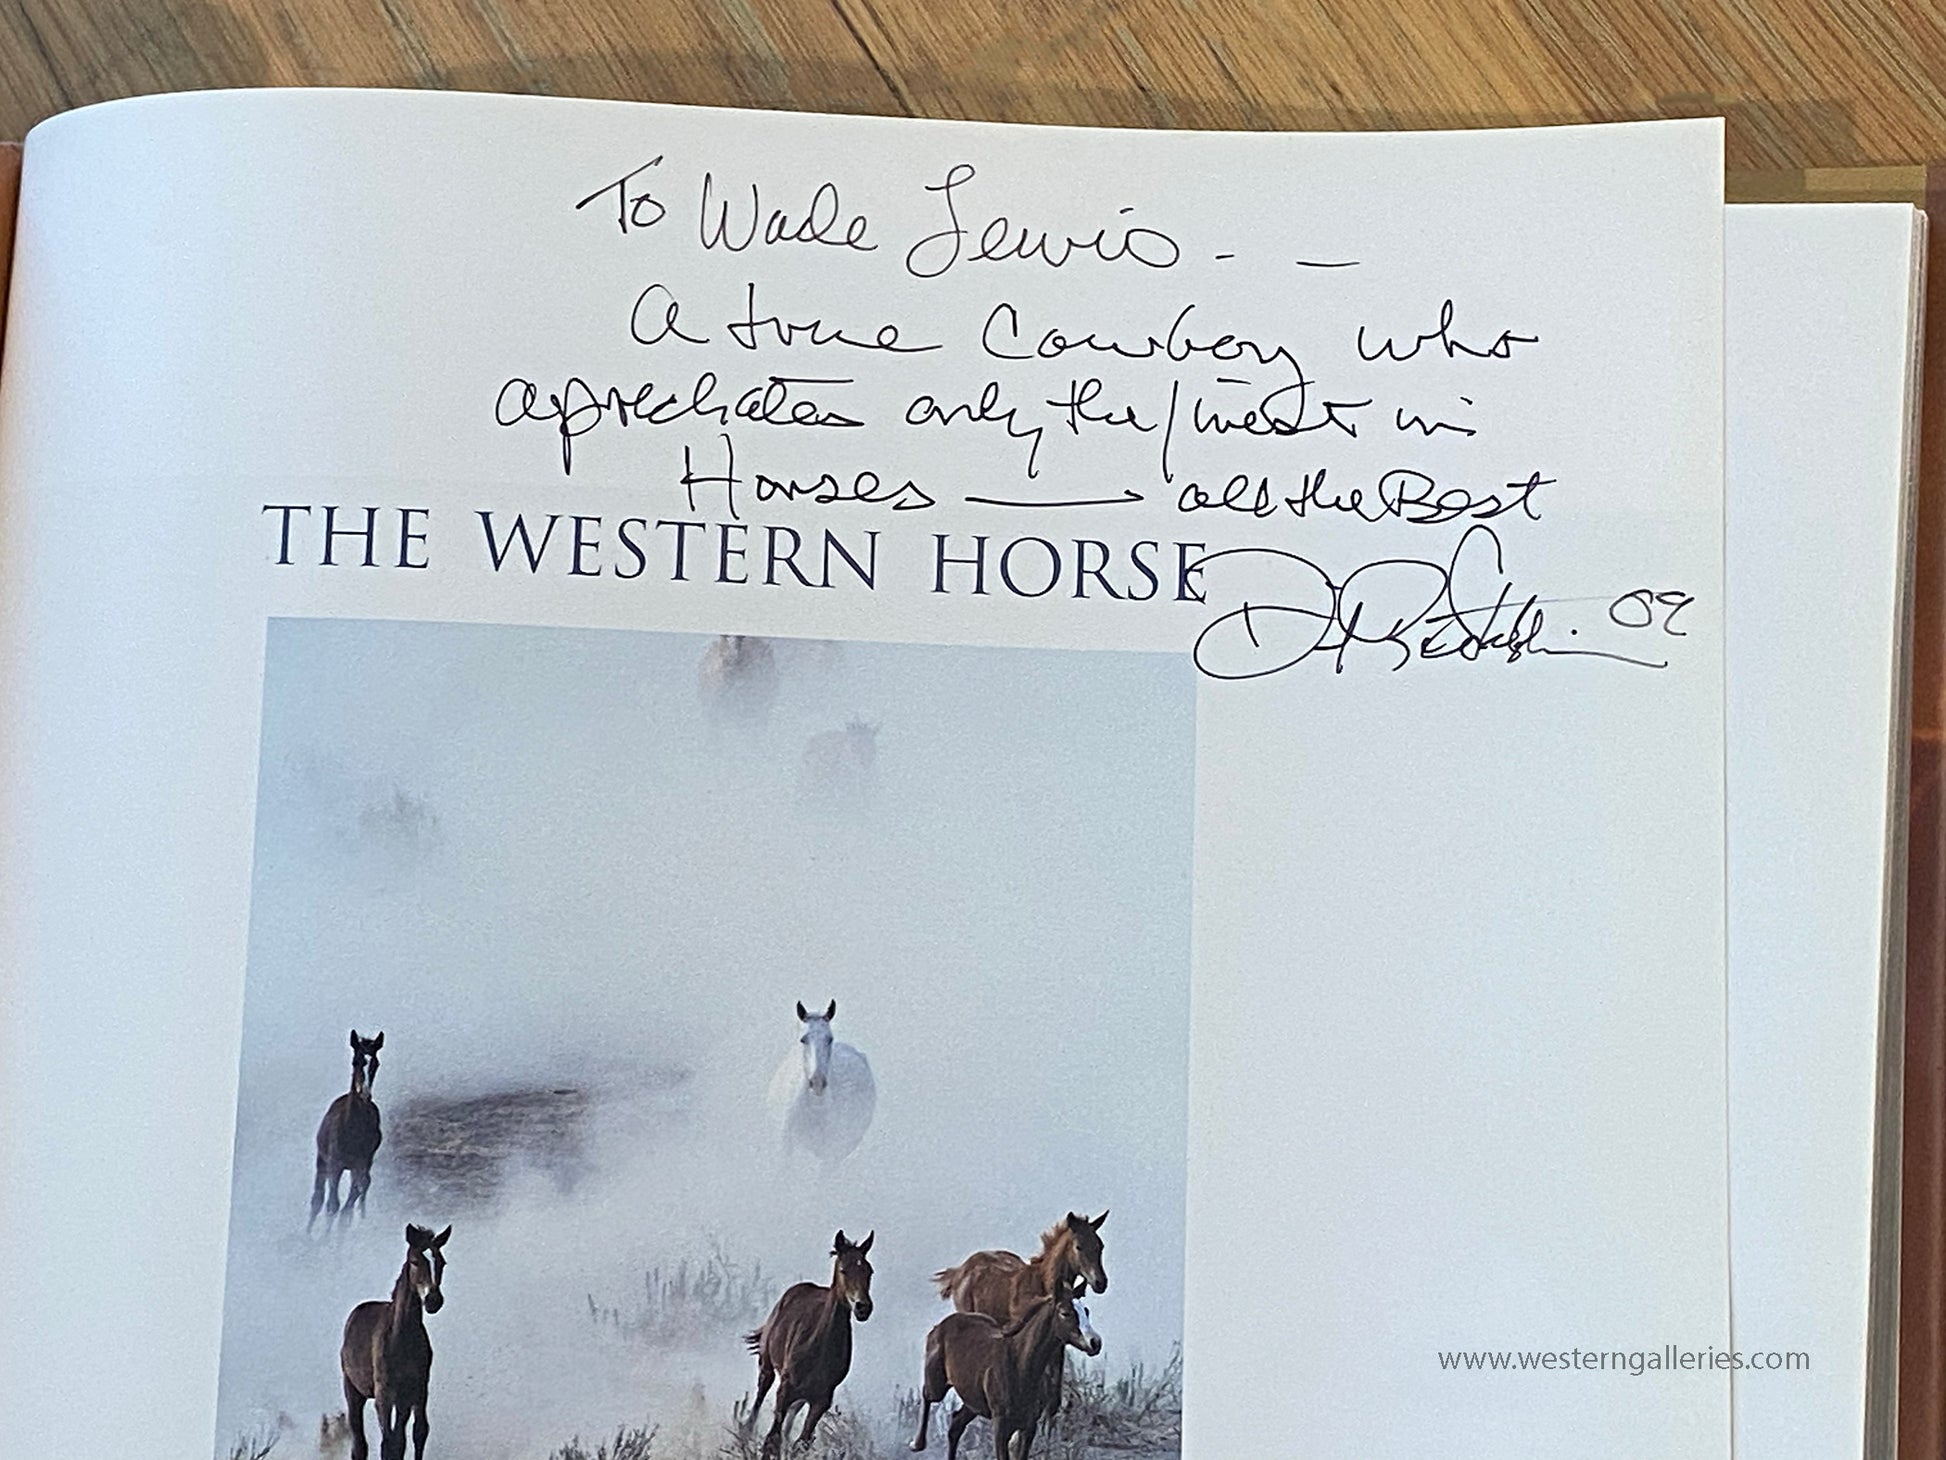 To Wade Lewis - —
A true Cowboy who
apreciates only the finest in
Horses — all the Best
THE WESTERN HORSE
09
www.westerngalleries.com